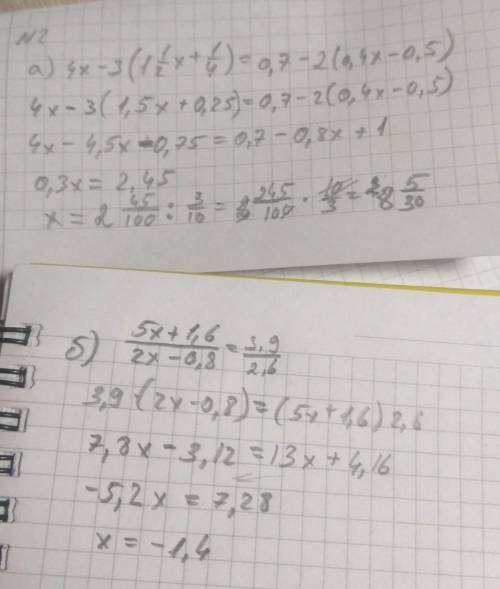 №2
а) 4x - 3(1 1/2 x + 1/4) = 0,7 - 2(0,4x - 0,5)
4x - 3(1,5x + 0,25) = 0,7 - 2(0,4x - 0,5)
4x - 4,5x - 0,75 = 0,7 - 0,8x + 1
0,3x = 2,45
x = 2 45/100 : 3/10 = 245/100 · 10/3 = 8 5/30
б) 5x+1,6/2x-0,8 = 3,9/2,6
3,9·(2x-0,8) = (5x+1,6)2,6
7,8x - 3,12 = 13x + 4,16
-5,2x = 7,28
x = -1,4